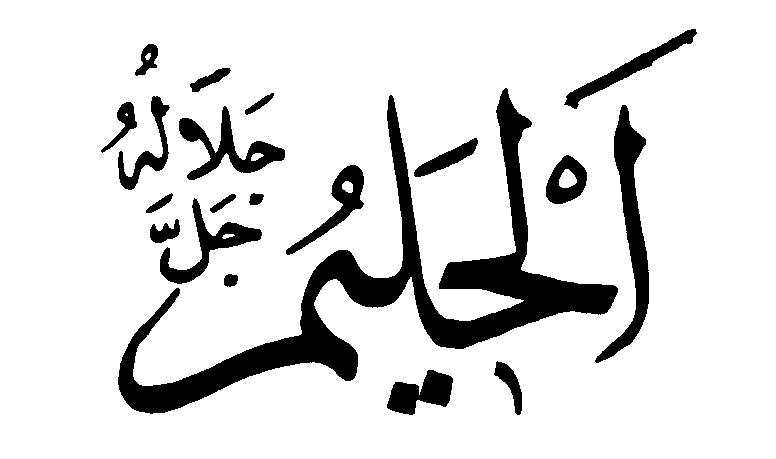 اَلْحَلِيمُ
جَلَّ
جَلَالُهُ